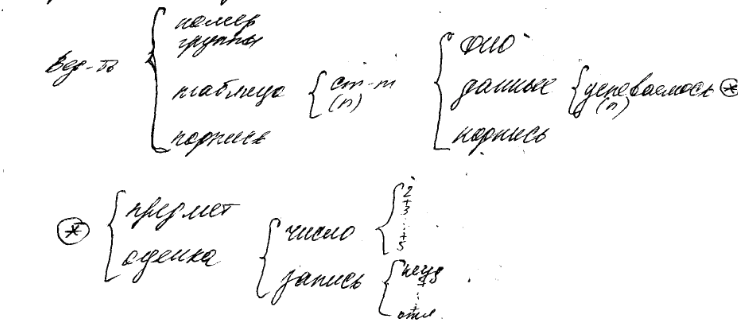 номер
группы
Вед-ть
таблица
ст-т
(n)
подпись
ФИО
данные
успеваемость *
(n)
подпись
* предмет
оценка
число
2
+
3
+
5
запись
неуд
+
отл